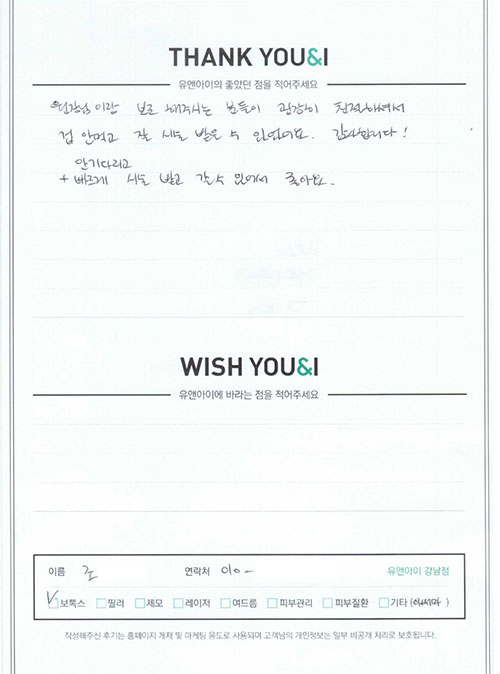 THANK YOU&I
유앤아이의 좋았던 점을 적어주세요
원장님이랑 보조해주시는 분들이 굉장히 친절하셔서
겁 안먹고 잘 시술 받을 수 있었어요. 감사합니다!
안기다리고
+ 빠르게 시술 받고 갈 수 있어서 좋아요.
WISH YOU&I
유앤아이에 바라는 점을 적어주세요
이름 조 연락처 010- 유앤아이 강남점
V 보톡스 필러 제모 레이저 여드름 피부관리 피부질환 기타 ( )
작성해주신 후기는 홈페이지 게재 및 마케팅 용도로 사용되며 고객님의 개인정보는 일부 비공개 처리로 보호됩니다.